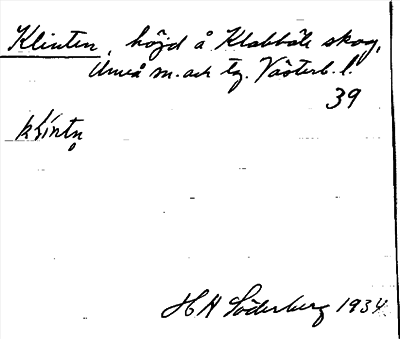 Klinten, höjd å Klabböle skog,
Umeå sn. och tg. Västerb. l.
39
klíntn̥
H A Söderberg 1934.